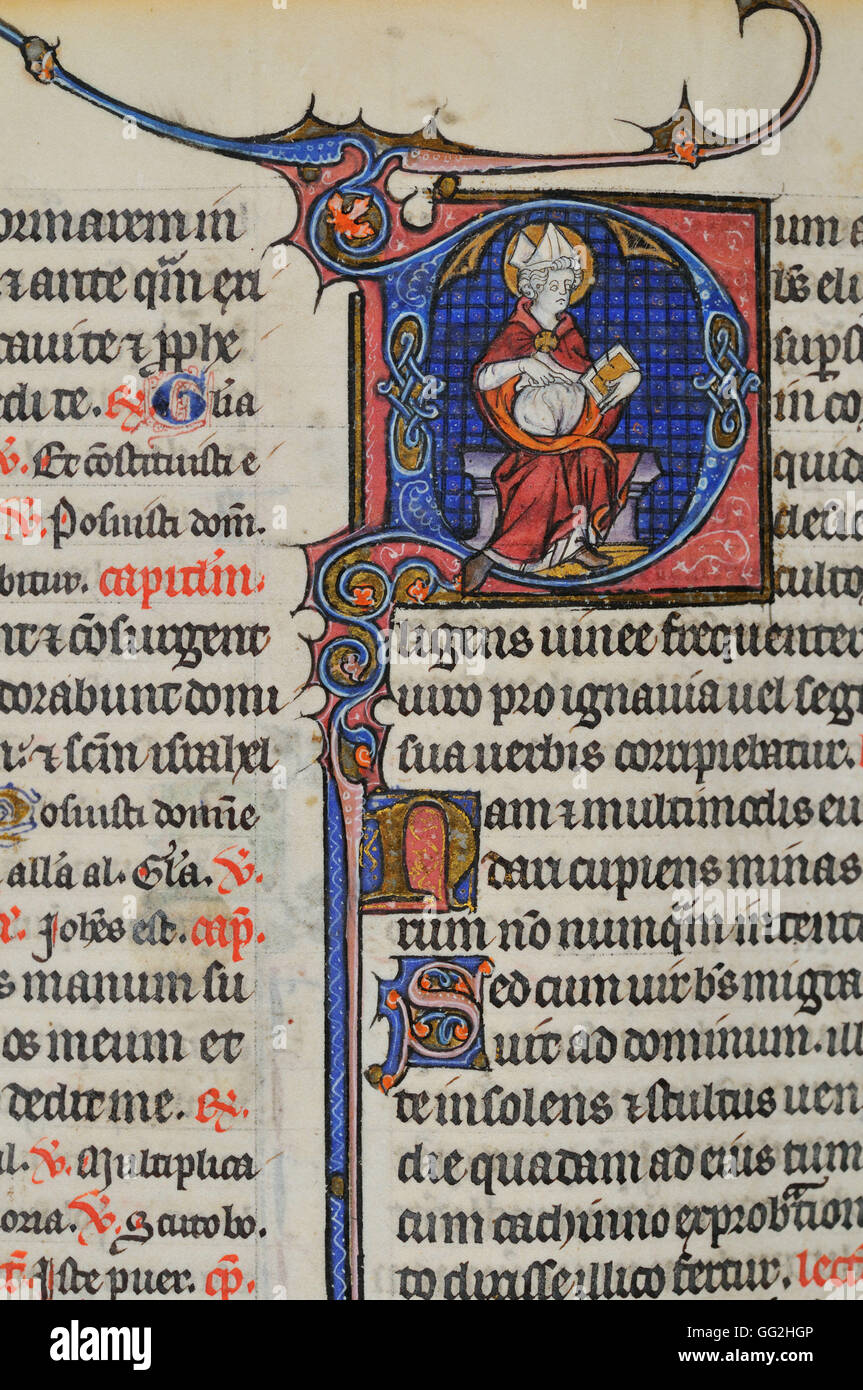 in
ante qm eri
cauite & pphe
edite. R Gl'ia
V. Et cōstituisti e
V. Posuisti dom̄.
bitur. capitl'm.
nt & cōsurgent
dorabunt domi
n: & scm̄ israhel
Posuisti domīe
all'a al. Gl'a. V.
Johēs est. cap.
s manum su
os meum et
dedit me. R.
al. V. Multiplica
oria. V. Scuto bo.
Iste puer. cp.
Dum a
supers
in co
quid
cleric
culto
lagens uinee frequenter
uiro pro ignauia uel segn
sua uerbis corripiebatur.
Nam & multimodis eu
dari cupiens minas
rum nō numq̄m intent
Sed cum uir bs migra
uit ad dominum. ill
te insolens & stultus uen
die quadam ad eius tum
cum cachinno exprobration
to dixisse illico fertur. lect
alamy
alamy
alamy
Image ID: GG2HGP
www.alamy.com